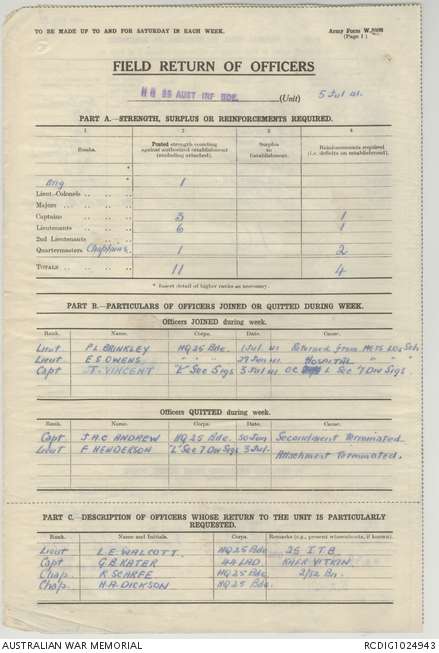 TO BE MADE UP TO AND FOR SATURDAY IN EACH WEEK.
Army Form W.3008
(Page 1)
FIELD RETURN OF OFFICERS
HQ 25 AUST INF BDE. (Unit) 5 Jul 41.
PART A.—STRENGTH, SURPLUS OR REINFORCEMENTS REQUIRED.
1 2 3 4
Ranks. Posted strength counting against authorized establishment (excluding attached). Surplus to Establishment. Reinforcements required (i.e. deficits on establishment).
* *
Brig 1
Lieut-Colonels
Majors
Captains 3 1
Lieutenants 6 1
2nd Lieutenants
Quartermasters Chaplains 1 2
TOTALS 11 4
* Insert detail of higher ranks as necessary.
PART B.—PARTICULARS OF OFFICERS JOINED OR QUITTED DURING WEEK.
Officers JOINED during week.
Rank. Name. Corps. Date. Cause.
Lieut P.L. BRINKLEY HQ 25 Bde. 1 Jul 41 Returned from
Lieut E.S. OWENS " " " 27 Jun 41 " HOSPITAL " "
Capt J. VINCENT "L" Sec Sigs 3 Jul 41 OC L Sec 7 Div Sigs
Officers QUITTED during week.
Rank. Name. Corps. Date. Cause.
Capt J.A.C ANDREW HQ 25 Bde. 30 Jun Secondment Terminated.
Lieut F. HENDERSON "L" Sec 7 Div Sigs 3 Jul. Attachment Terminated.
PART C.—DESCRIPTION OF OFFICERS WHOSE RETURN TO THE UNIT IS PARTICULARLY REQUESTED.
Rank. Name and Initials. Corps. Remarks (e.g., present whereabouts, if known).
Lieut L.E. WALCOTT. HQ 25 Bde 25 I.T.B.
Capt G.B. KATER LAD. KAFR VITKIN
Chap. K. SCARFE HQ 25 Bde 2/52 Bn.
Chap. H.A. DICKSON HQ 25 Bde.
AUSTRALIAN WAR MEMORIAL
RCDIG1024943